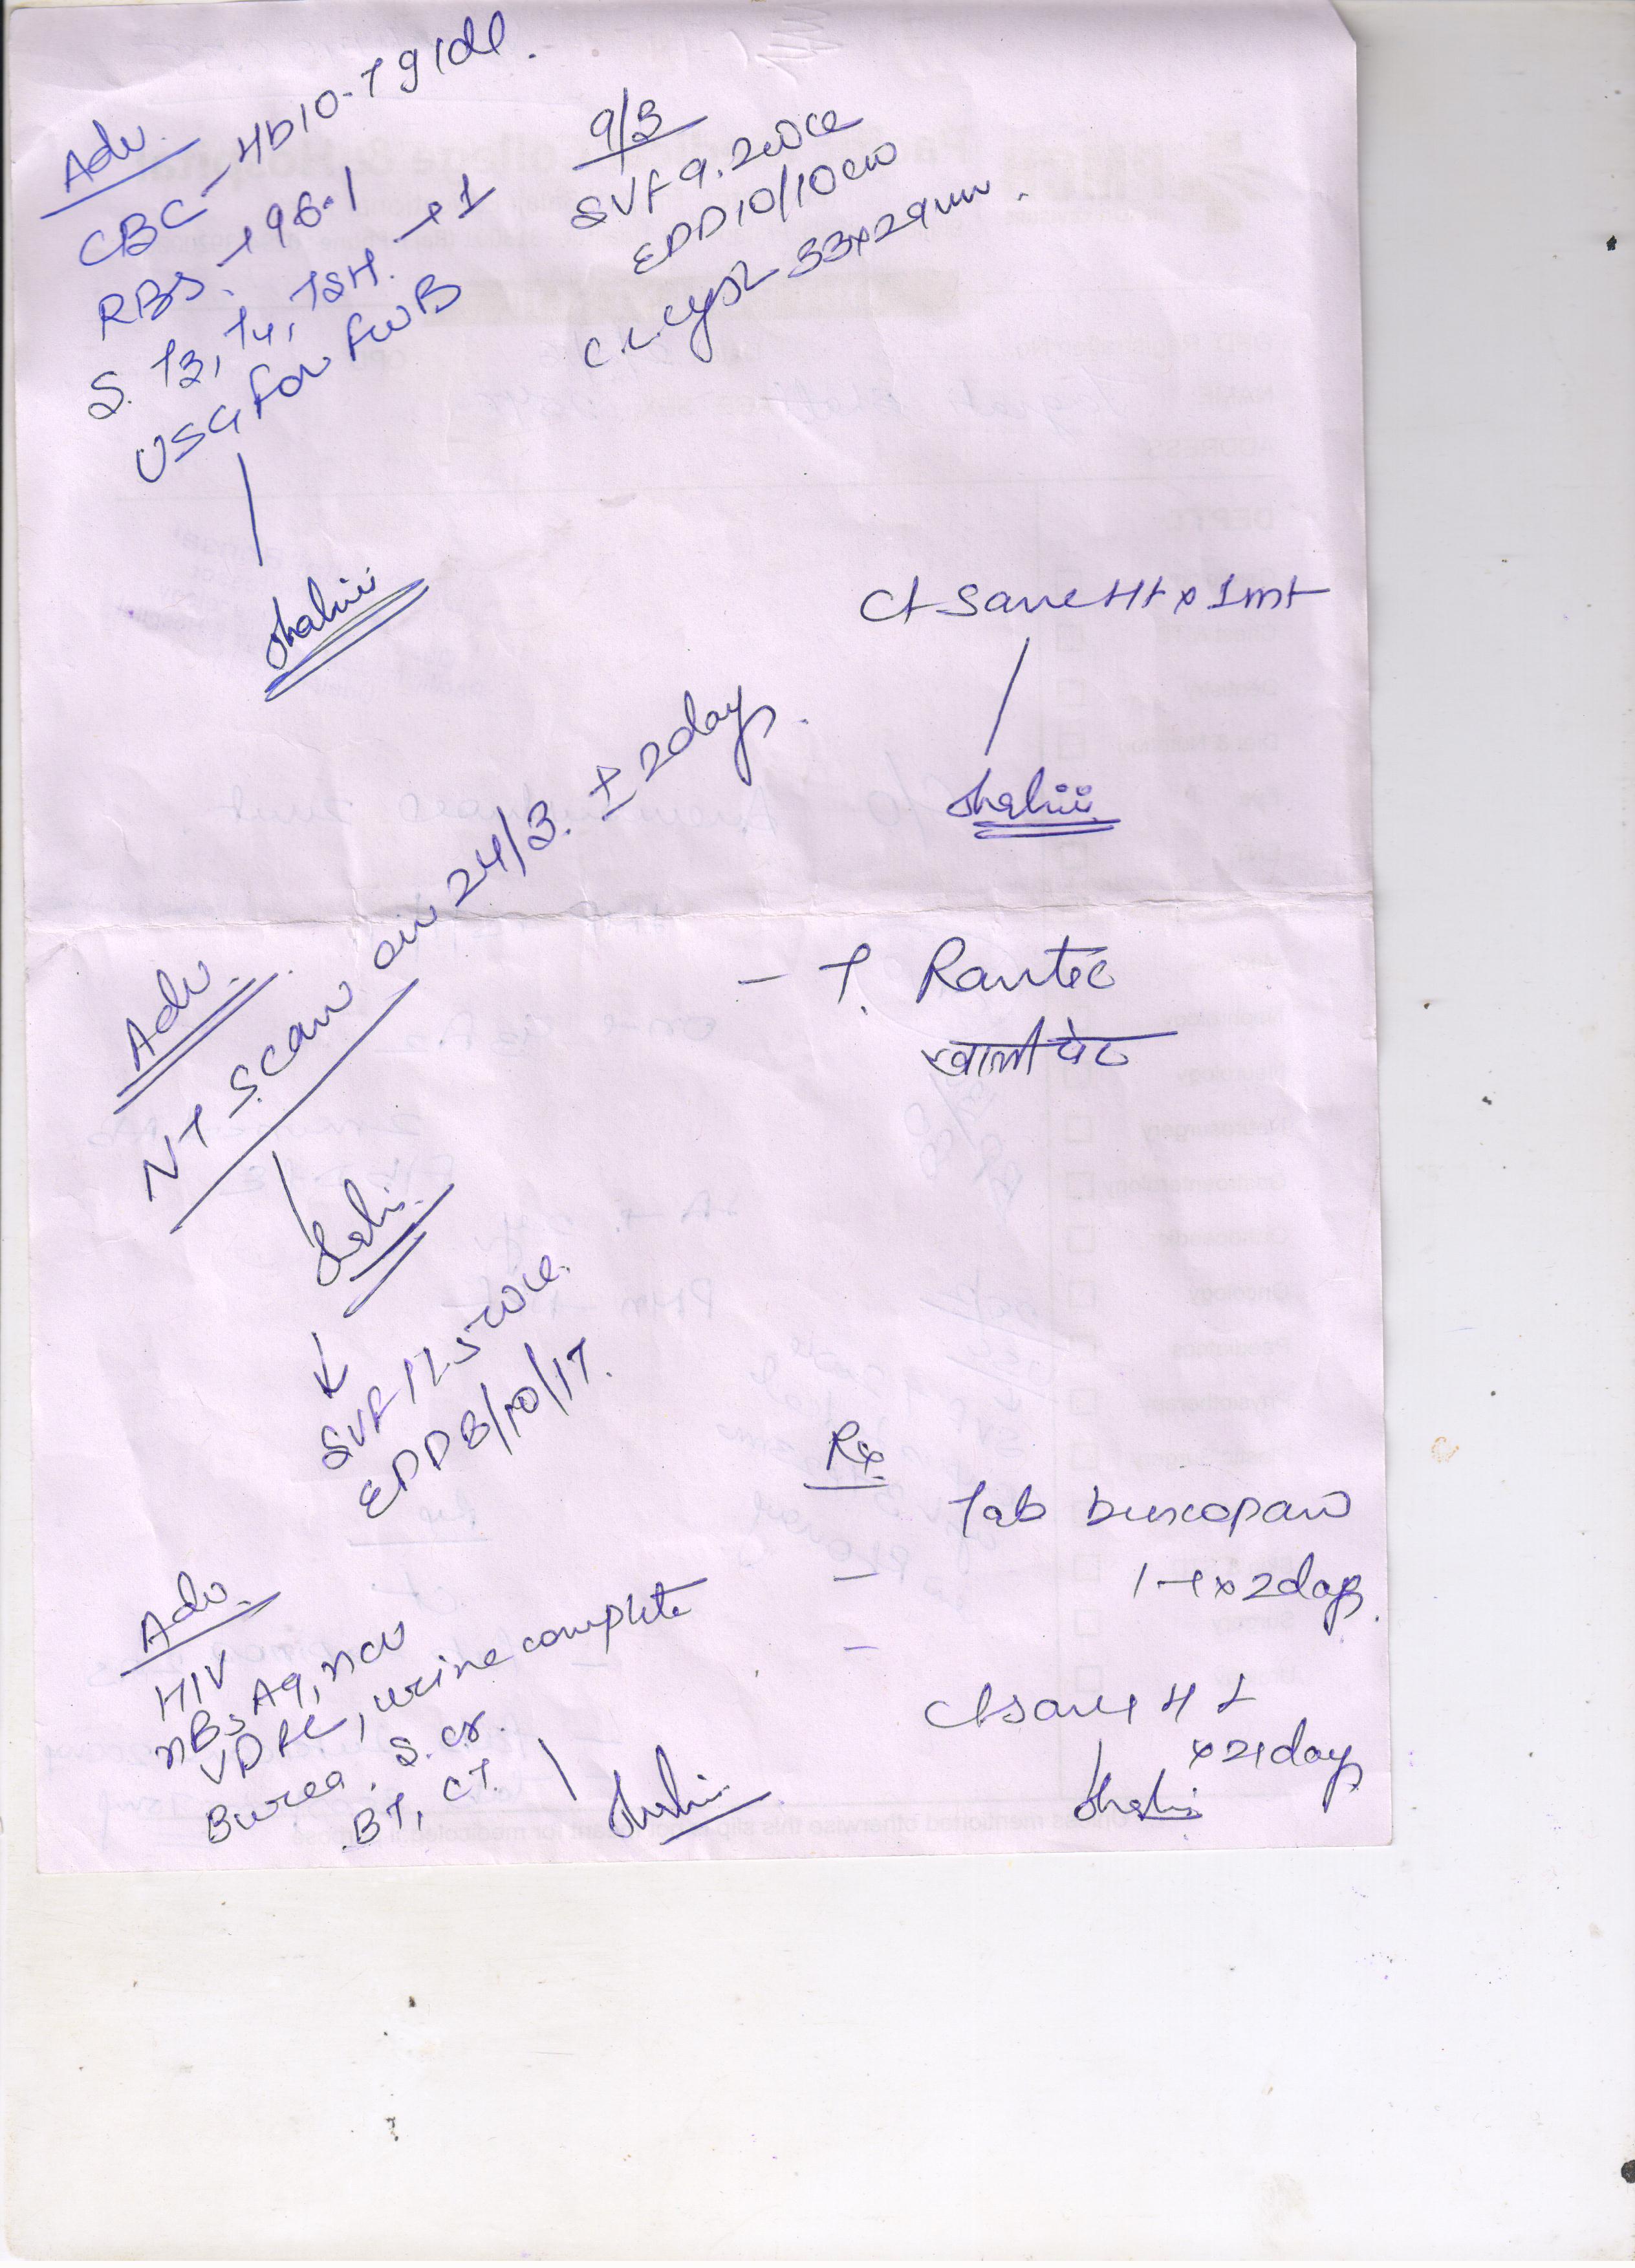 Adv.
CBC - Hb 10.7 g/dl.
RBS. → 98.1
S. T3, T4, TSH. → 1
USG for FWB
Shalini
9/3
SVF 9.2 wk
EDD 10/10
C.L. cyst 33x29mm.
Ct Same Ht x 1mt
Shalini
Adv.
NT Scan on 24/3. ± 2days.
Shalini
↓
SVF
EDD 8/10/17.
- T. Rantec
खाली पेट
Rx
Tab buscopan
1-1 x 2days.
Ct same Ht
x 21days
Shalini
Adv.
HIV
HBsAg, HCV
VDRL, urine complete
B urea, S. cr.
BT, CT.
Shalini